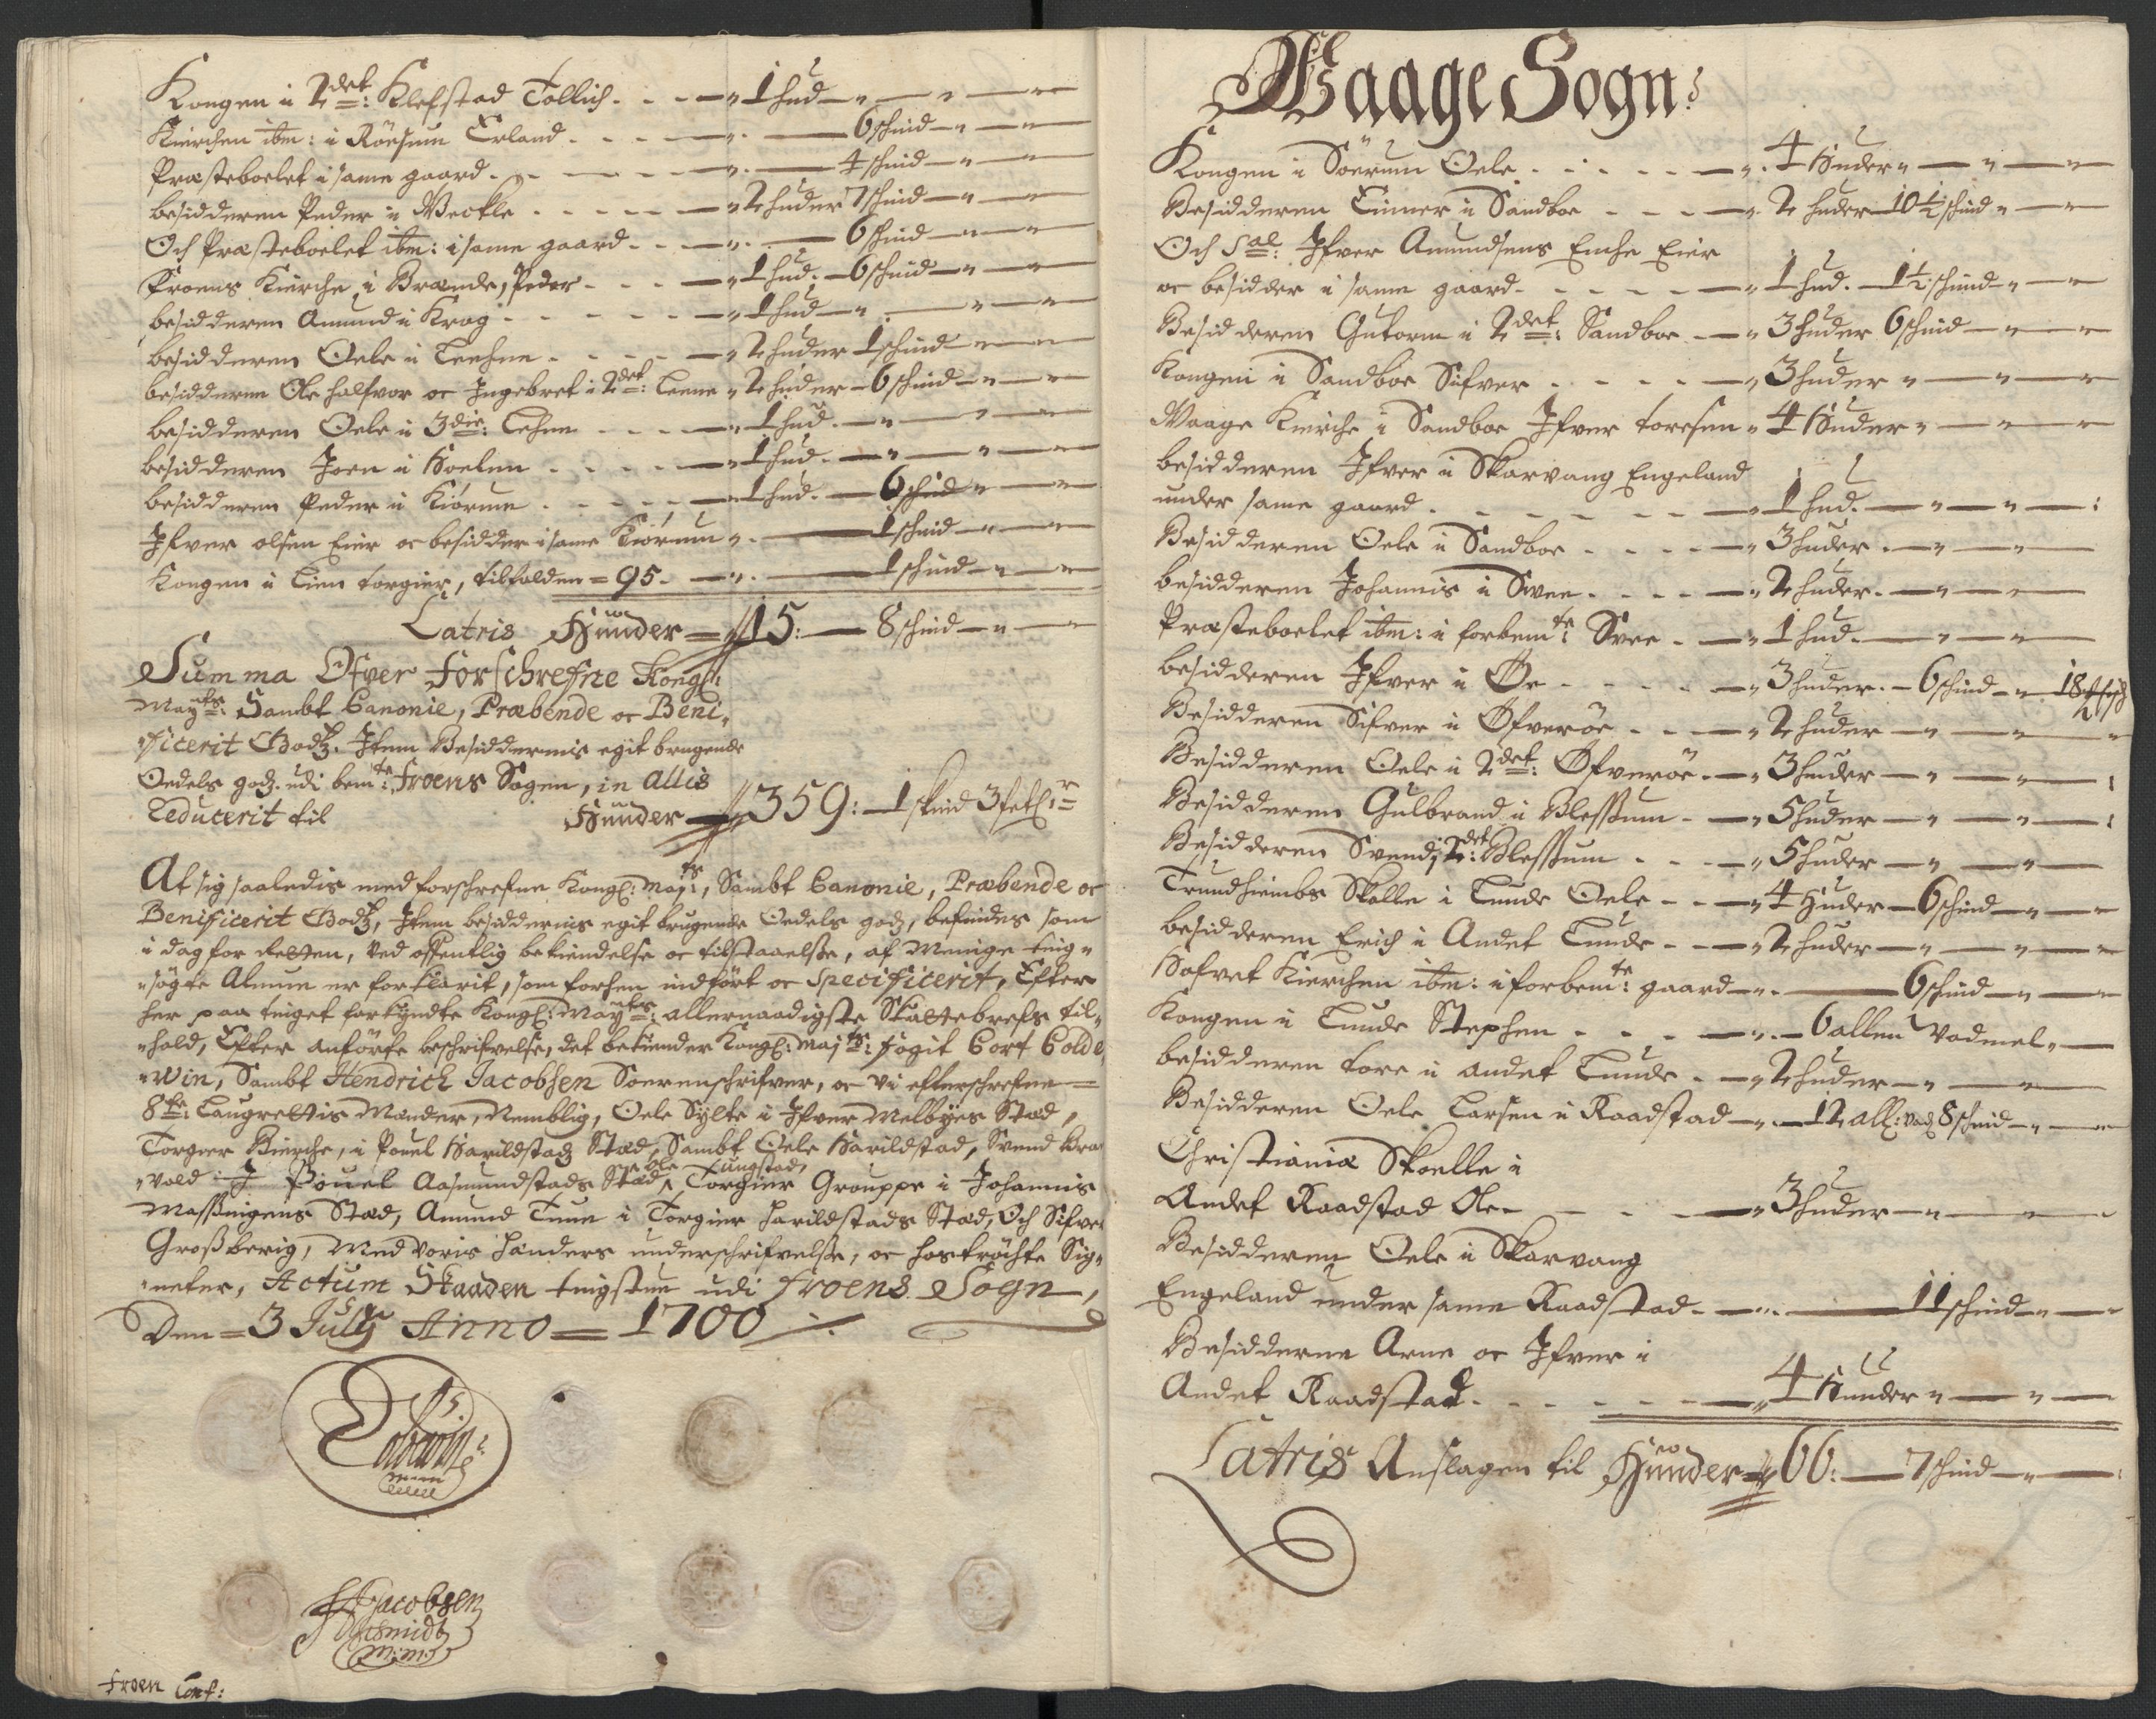 Kongen i 2det: Klefstad Tollich - - - 1 hud
Kierchen ibm: i Röesum Erland - - - 6 schind
Præsteboelet i same gaard - - - 4 schind
besidderen Peder i Weckle - - - 2 huder 7 schind
Och Præsteboelet ibm: i same gaard - - - 6 schind
Froens Kierche i Brænde, Peder - - - 1 hud 6 schind
besidderen Amund i Krog - - - 1 hud
besidderen Oele i Leehne - - - 2 huder 1 schind
besidderen Ole Halfvor oc Ingebret i 2det: Leene 2 huder - 6 schind
besidderen Oele i 3die: Lehne - - - 1 hud
besidderen Joen i Hoelen - - - 1 hud
besidderen Peder i Kiörum - - - 1 hud - 6 schind
Ifver olsen Eier oc besidder i same Kiörum - 1 schind
Kongen i Lien torgier, tilfalden = 95 - 1 schind
Latris Hünder = 15: - 8 schind
Summa Ofver forschrefne Kongl:
Mayts: Sambt Canonie, Præbende oc Beni,
ficerit Godtz. Item Besiddernis egit brugende
Oedels godz. udi bemte: froens Sogen, in allis
Reducerit til Hünder 359: - 1 skind 3 fetl:r
At sig saaledis med forschrefne Kongl: Mayts:, Sambt Canonie, Præbende oc
Benificerit Godtz, Item besiddernis egit brugende Oedels godz, befindes som
i dag for Retten, ved offentlig bekiendelse oc tilstaaelse, af Menige ting,,
,,søgte Almue er forklarit, som forhen indført oc Specificerit, Efter
her paa tinget forkyndte Kongl: Mayts: allernaadigste Skattebrefs til,,
,,hold, Efter anførte beschrifvelse, det bekiender Kongl: Mayts: fogit Cort Colde,
,,win, Sambt Hendrich Jacobsen Soerenschrifver, oc vi efterschrefne
8te: Laugrettis Mænder, Nemblig, Oele Sylte i Ifver Melbyes Stæd,
Torgier Bierche, i Povel Harildstadz Stæd, Sambt Oele Harildstad, Svend Bra
,,vold i Povel Aasmundstads Stæd, Ole Lungstad, Torgier Grouppe i Johannis
Massingens Stæd, Amund Tune i Torgier Harildstads Stæd, Och Sifver
Großberig, Med voris hænders underschrifvelse, oc hostrøchte Sig,,
,,neter, Actum Skaaden tingstue udi froens Sogn,
Den = 3 July Anno = 1700
H Jacobsen
Schmidt
m:m:
froen Conf:
Waage Sogn:
Kongen i Söerum Oele - - - 4 Huder
Besidderen Einner i Sandboe - - - 2 huder 10½ schind
Och Sal: Ifver Amundsens Enche Eier
oc besidder i same gaard - - - 1 hud. 1½ schind
Besidderen Gutorm i 2det: Sandboe - 3 huder 6 schind
Kongen i Sandboe Sifver - - - 3 huder
Waage Kierche i Sandboe Ifver toresen - 4 Huder
besidderen Ifver i Skarvang Engeland
under same gaard - - - 1 hud.
Besidderen Oele i Sandboe - - - 3 huder
besidderen Johannis i Svee - - - 2 huder
Præsteboelet ibm: i forbemte: Svee - 1 hud
besidderen Ifver i Øe - - - 3 huder - 6 schind
Besidderen Sifver i Øfveröe - - - 2 huder
Besidderen Oele i 2det: Øfveröe - 3 huder
Besidderen Gulbrand i Blessum - 5 huder
Besidderen Svend i 2det: Blessum - - - 5 huder
Trundhiembs Skolle i Lunde Oele - - - 4 Huder - 6 schind
besidderen Erich i Andet Lunde - - - 2 huder
Hofvet Kierchen ibm: i forbemte: gaard - 6 schind
Kongen i Lunde Stephen - - - 6 allen Vadmel
besidderen tore i andet Lunde - 2 huder
Besidderen Oele Larsen i Raadstad - 12 all: vad 8 schind
Christiania Skoelle i
Andet Raadstad Ole - - - 3 huder
Besidderen Oele i Skarvang
Engeland under same Raadstad - 11 schind
Besidderne Arne oc Ifver i
Andet Raadstad - - - 4 Hunder
Latris Anslagen til Hünder 66: - 7 schind